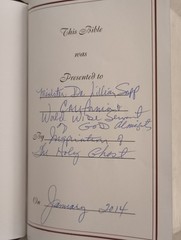 This Bible
was
Presented to
Minister Dr. Lillian Sapp
World Wide Servant
of GOD Almighty
By Inspiration of
The Holy Ghost
On
January 2014